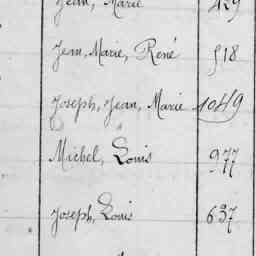 Jean, Marie 429
Jean, Marie, René 518
Joseph, Jean, Marie 1049
Michel, Louis 977
Joseph, Louis 637